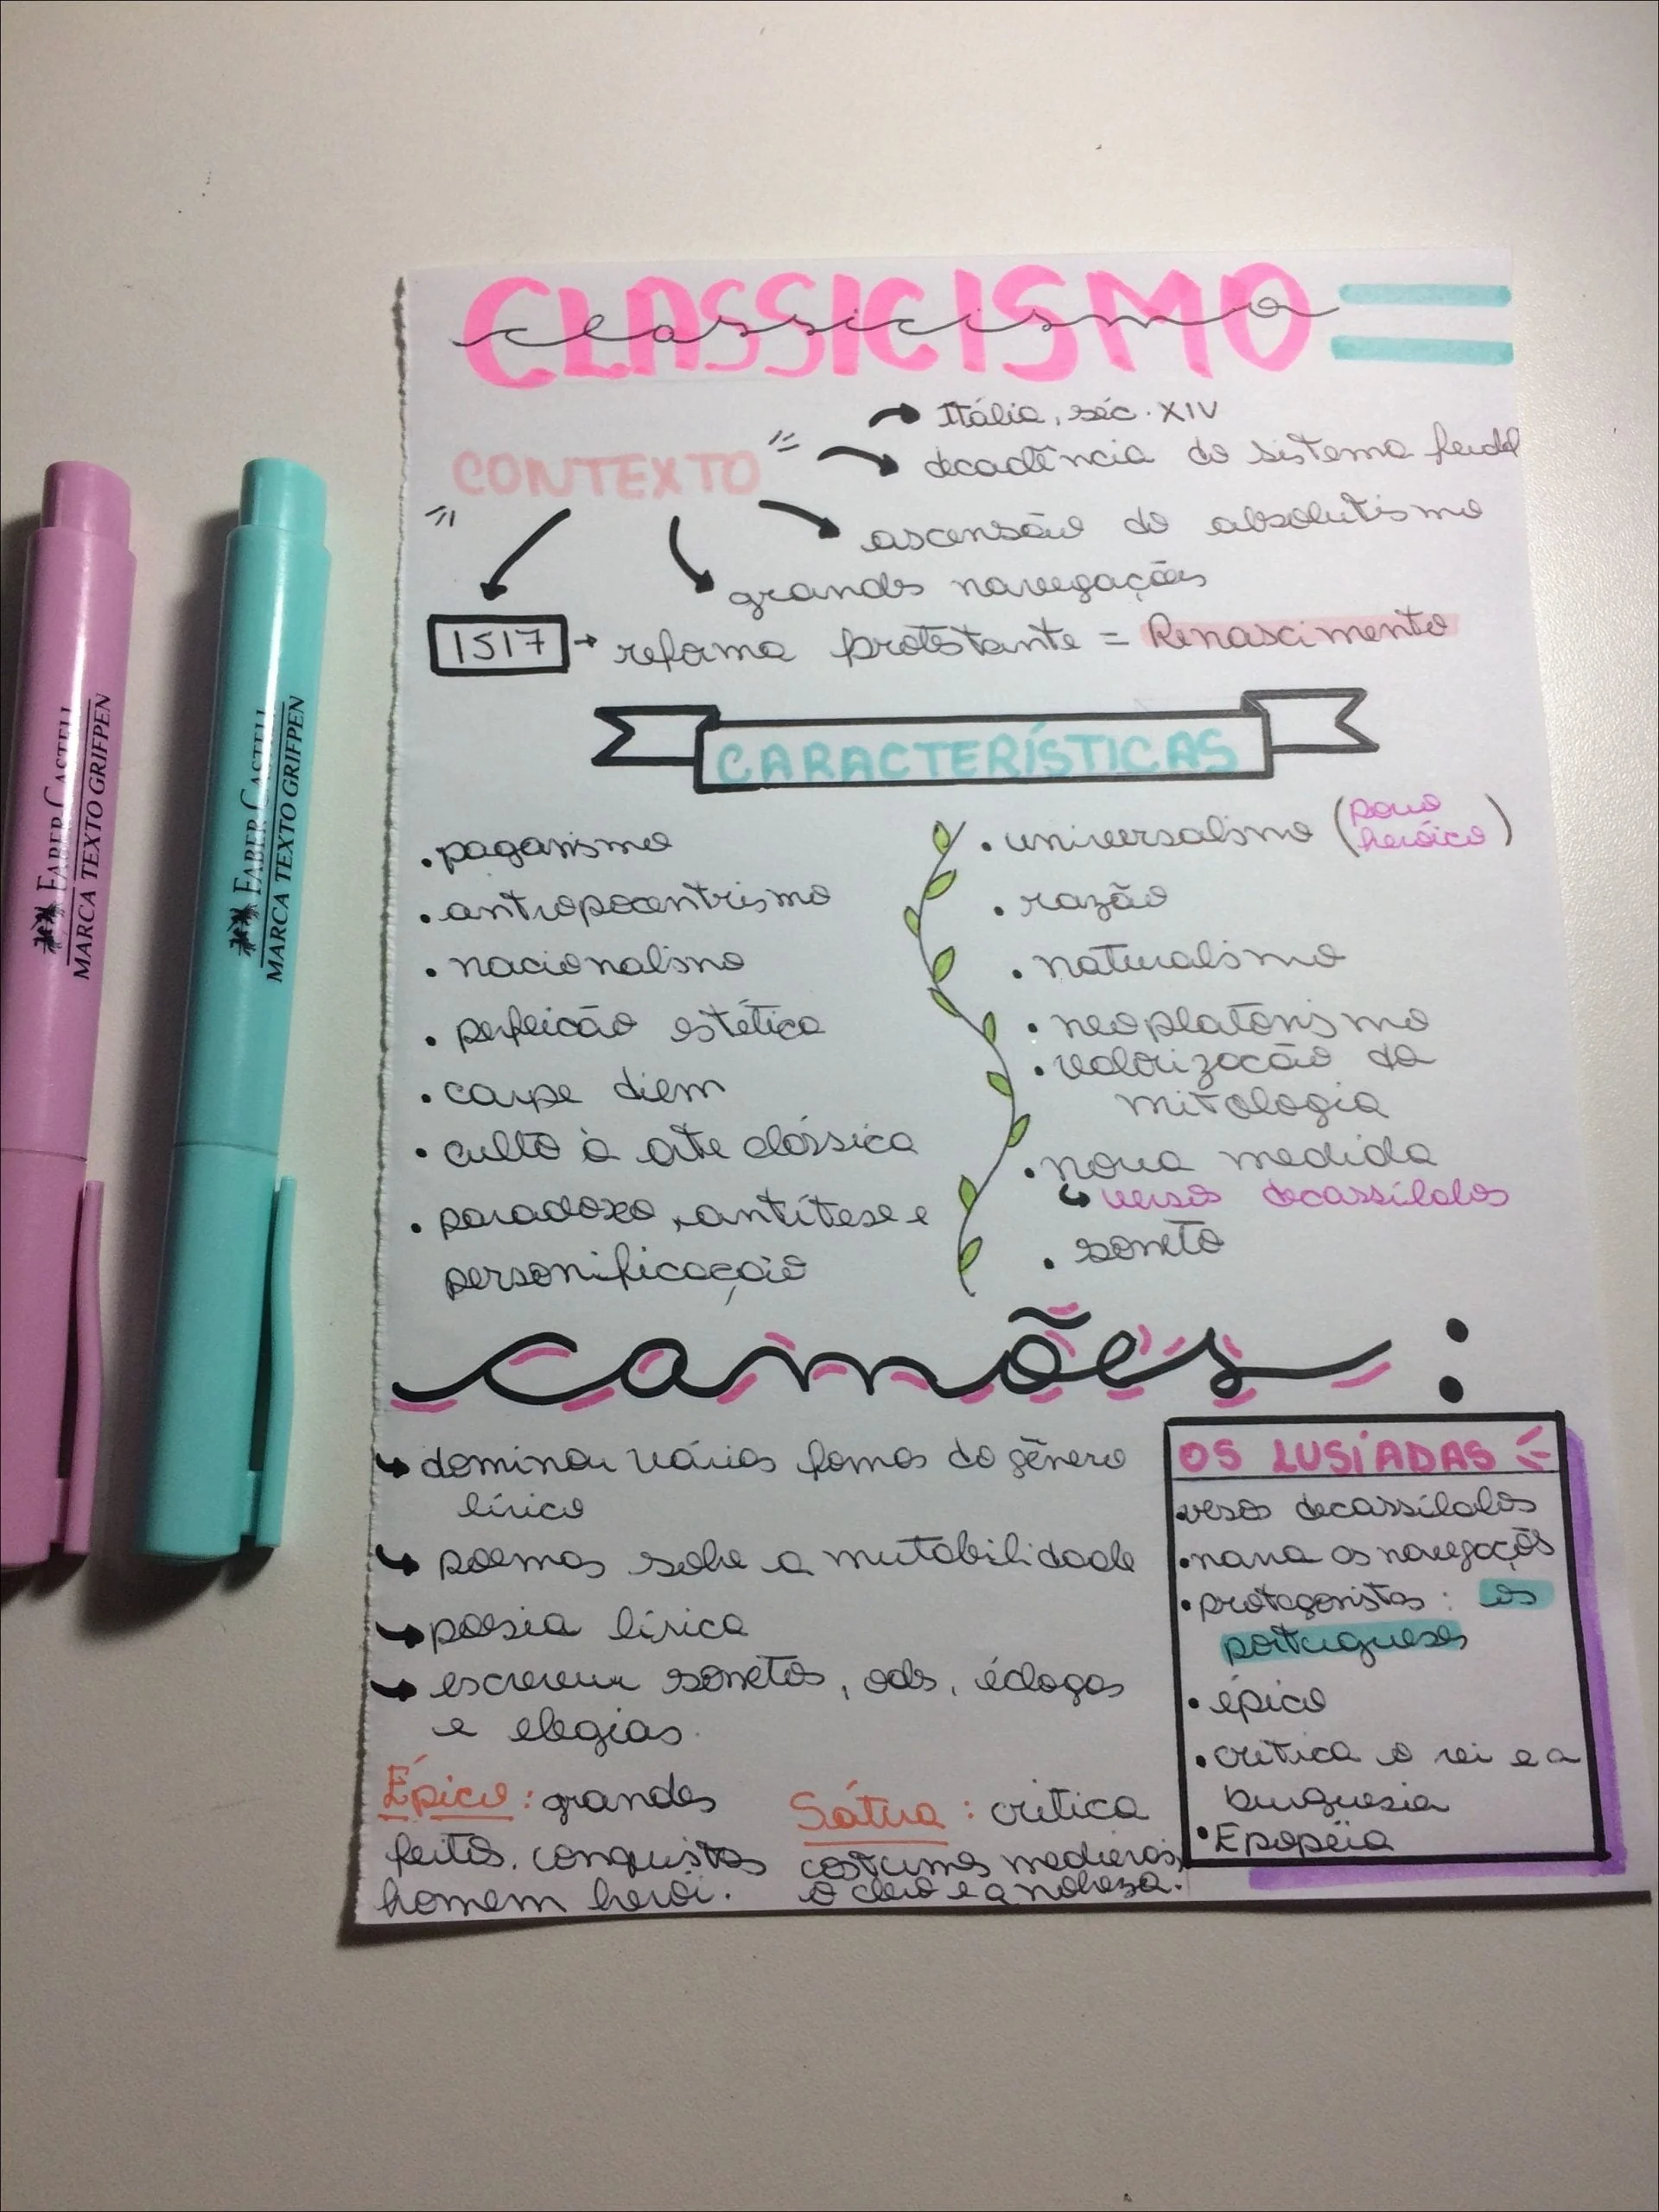 CLASSICISMO
classicismo
CONTEXTO
Itália, séc. XIV
decadência do sistema feudal
ascensão do absolutismo
grandes navegações
1517 → reforma protestante = Renascimento
CARACTERÍSTICAS
• paganismo
• antropocentrismo
• nacionalismo
• perfeição estética
• carpe diem
• culto à arte clássica
• paradoxo, antítese e
personificação
• universalismo (povo
heróico)
• razão
• naturalismo
• neoplatonismo
• valorização da
mitologia
• nova medida
↳ versos decassílabos
• soneto
camões:
↳ dominou várias formas do gênero
lírico
↳ poemas sobre a mutabilidade
↳ poesia lírica
↳ escreveu sonetos, odes, éclogas
e elegias.
Épico: grandes
feitos, conquistas
homem herói.
Sátira: crítica
costumes medievais,
o clero e a nobreza.
OS LUSÍADAS
• versos decassílabos
• narra as navegações
• protagonistas: os
portugueses
• épico
• critica o rei e a
burguesia
• Epopéia
FABER CASTELL
MARCA TEXTO GRIFPEN
FABER CASTELL
MARCA TEXTO GRIFPEN